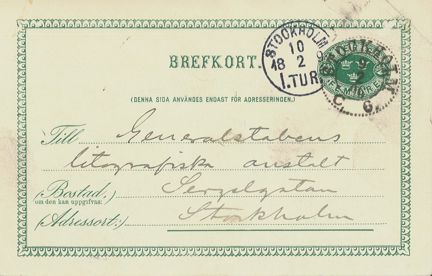 BREFKORT.
STOCKHOLM
10
18 2
1.TUR
(DENNA SIDA ANVÄNDES ENDAST FÖR ADRESSERINGEN.)
Till Generalstabens
litografiska anstalt
(Bostad.) Sergelgatan
om den kan uppgifvas:
(Adressort:) Stockholm